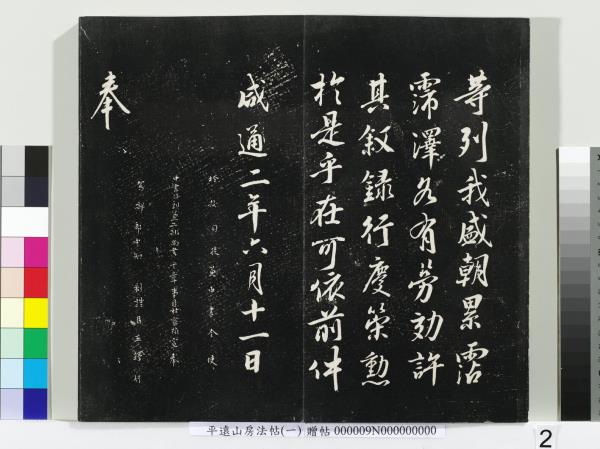 等列我盛朝累霑
霈澤各有勞効許
其叙録行慶策勳
於是乎在可依前件
咸通二年六月十一日
檢校司徒兼中書令使
奉
平遠山房法帖(一) 贈帖 000009N000000000
2